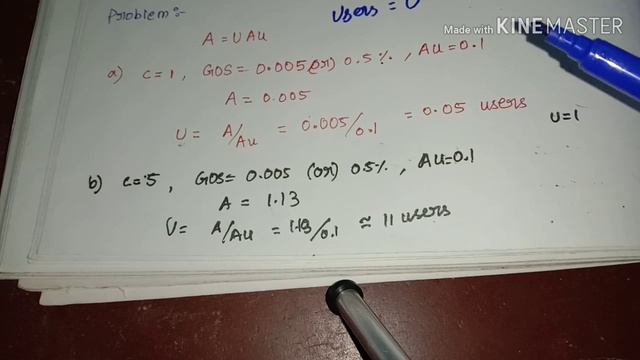 Made with KINEMASTER
Problem:-
Users = U
A = U Au
a) C=1, GOS= 0.005 (or) 0.5%, Au=0.1
A = 0.005
U = A/Au = 0.005/0.1 = 0.05 users
U=1
b) C=5, GOS= 0.005 (or) 0.5%, Au=0.1
A = 1.13
U= A/Au = 1.13/0.1 ≈ 11 users